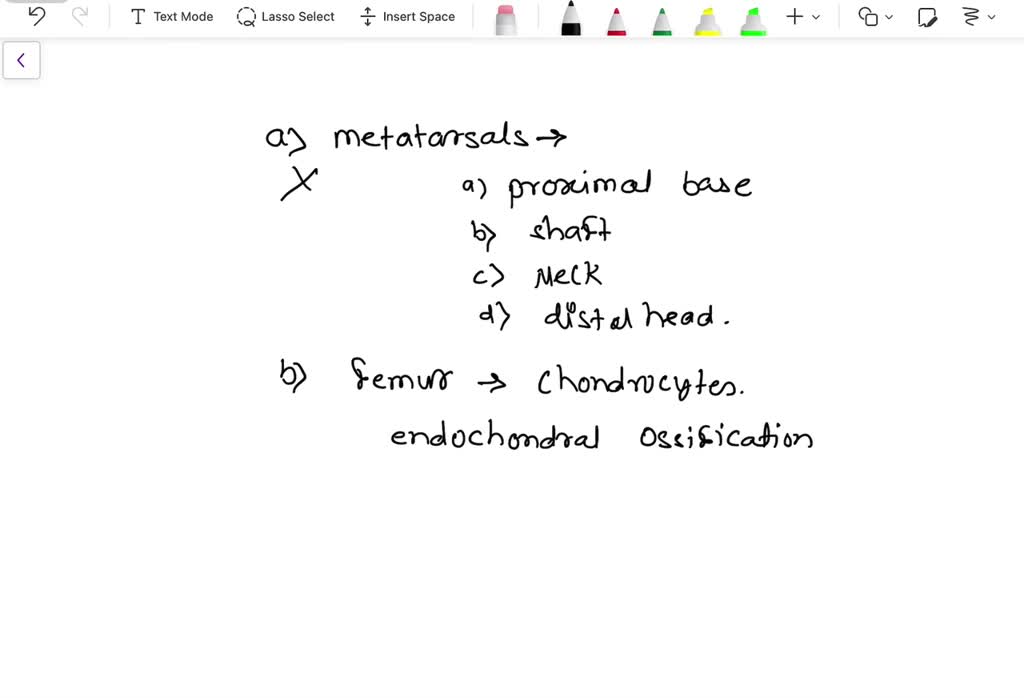 Text Mode Lasso Select Insert Space
a) metatarsals →
X a) proximal base
b) shaft
c) Neck
d) distal head.
b) femur → chondrocytes.
endochondral ossification